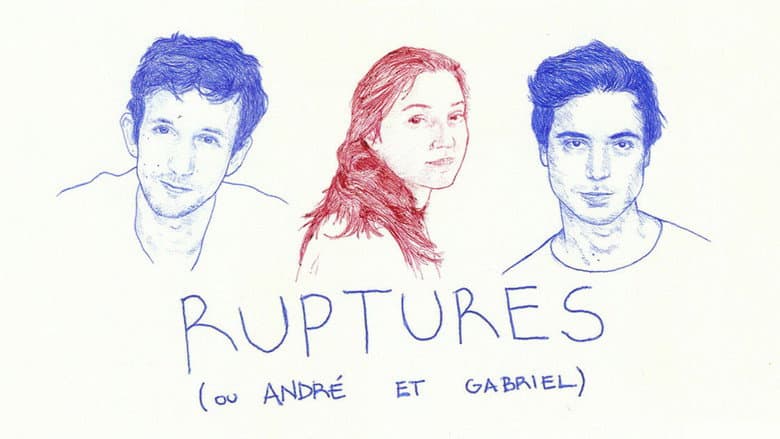 RUPTURES
(OU ANDRÉ ET GABRIEL)